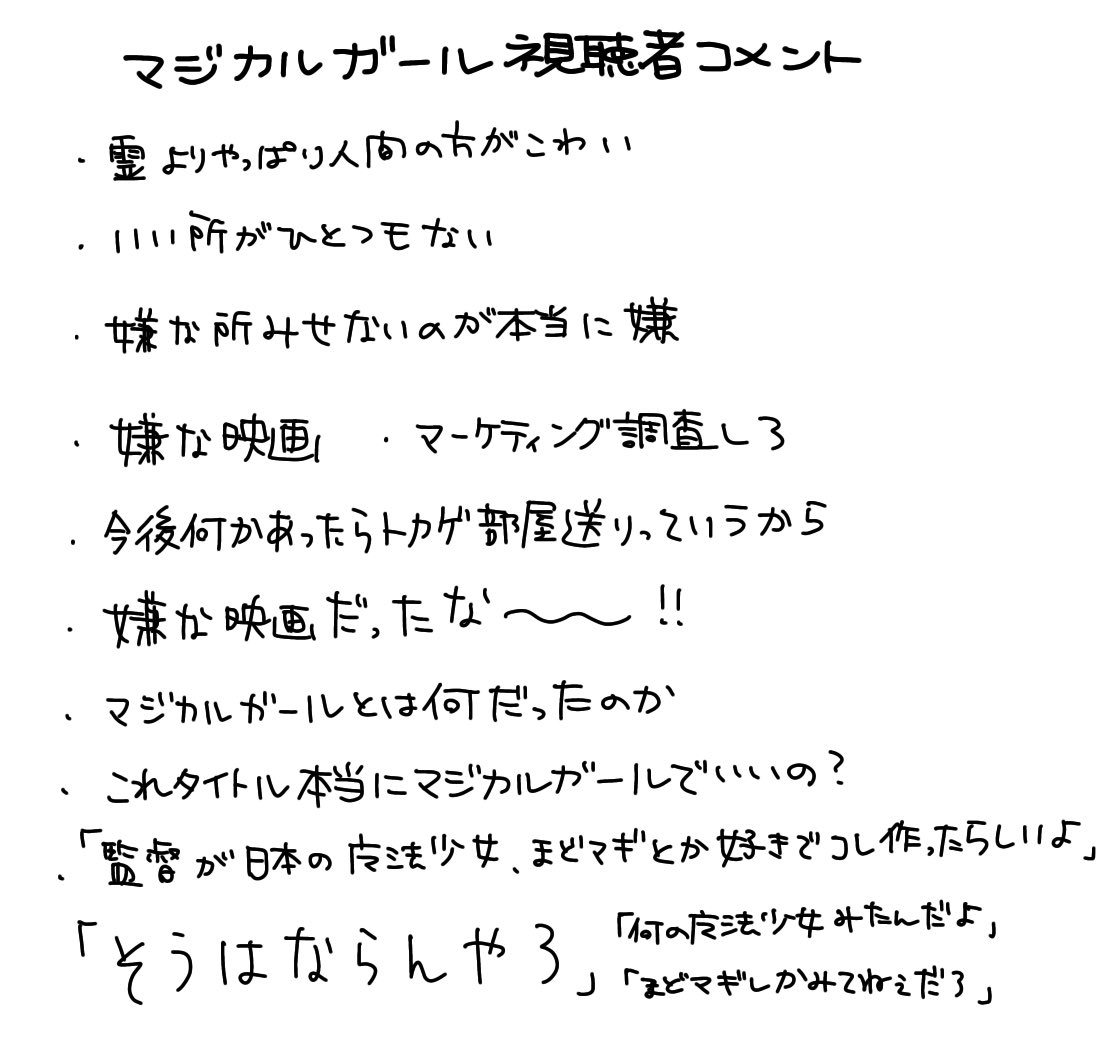 マジカルガール視聴者コメント
・霊よりやっぱり人間の方がこわい
・いい所がひとつもない
・嫌な所みせないのが本当に嫌
・嫌な映画 ・マーケティング調査しろ
・今後何かあったらトカゲ部屋送りっていうから
・嫌な映画だったな〜〜!!
・マジカルガールとは何だったのか
・これタイトル本当にマジカルガールでいいの?
・「監督が日本の魔法少女、まどマギとか好きでコレ作ったらしいよ」
「そうはならんやろ」
「何の魔法少女みたんだよ」
「まどマギしかみてねぇだろ」